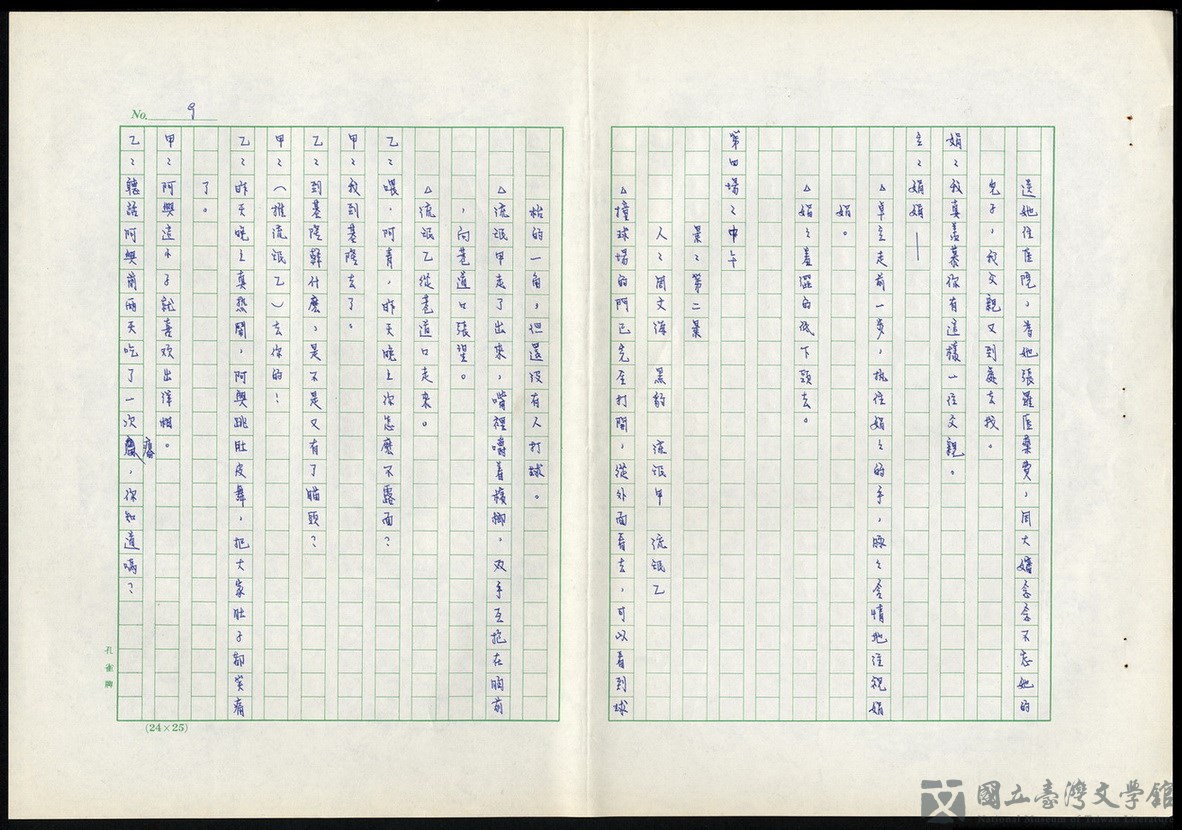 送她往醫院，著她張羅醫藥費，周大嬸念念不忘她的
兒子，我父親又到處去找。
娟：我真羨慕你有這樣一位父親。
主：娟娟——
△卓主走前一步，執住娟娟的手，脈脈含情地注視娟
娟。
△娟娟羞澀的低下頭去。
第四場：中午
景：第二景
人：周文海 黑豹 流氓甲 流氓乙
△撞球場的門已完全打開，從外面看去，可以看到球
枱的一角，但還沒有人打球。
△流氓甲走了出來，嘴裡嚼著檳榔。双手互抱在胸前
，向巷道口張望。
△流氓乙從巷道口走來。
乙：喂，阿青，昨天晚上你怎麼不露面？
甲：我到基隆去了。
乙：到基隆幹什麼，是不是又有了瞄頭？
甲：（推流氓乙）去你的！
乙：昨天晚上真熱鬧，阿興跳肚皮舞，把大家肚子都笑痛
了。
甲：阿興這小子就喜欢出洋相。
乙：聽話阿興前兩天吃了一次癟，你知道嗎？
No. 9
(24×25)
孔雀牌
國立臺灣文學館
National Museum of Taiwan Literature